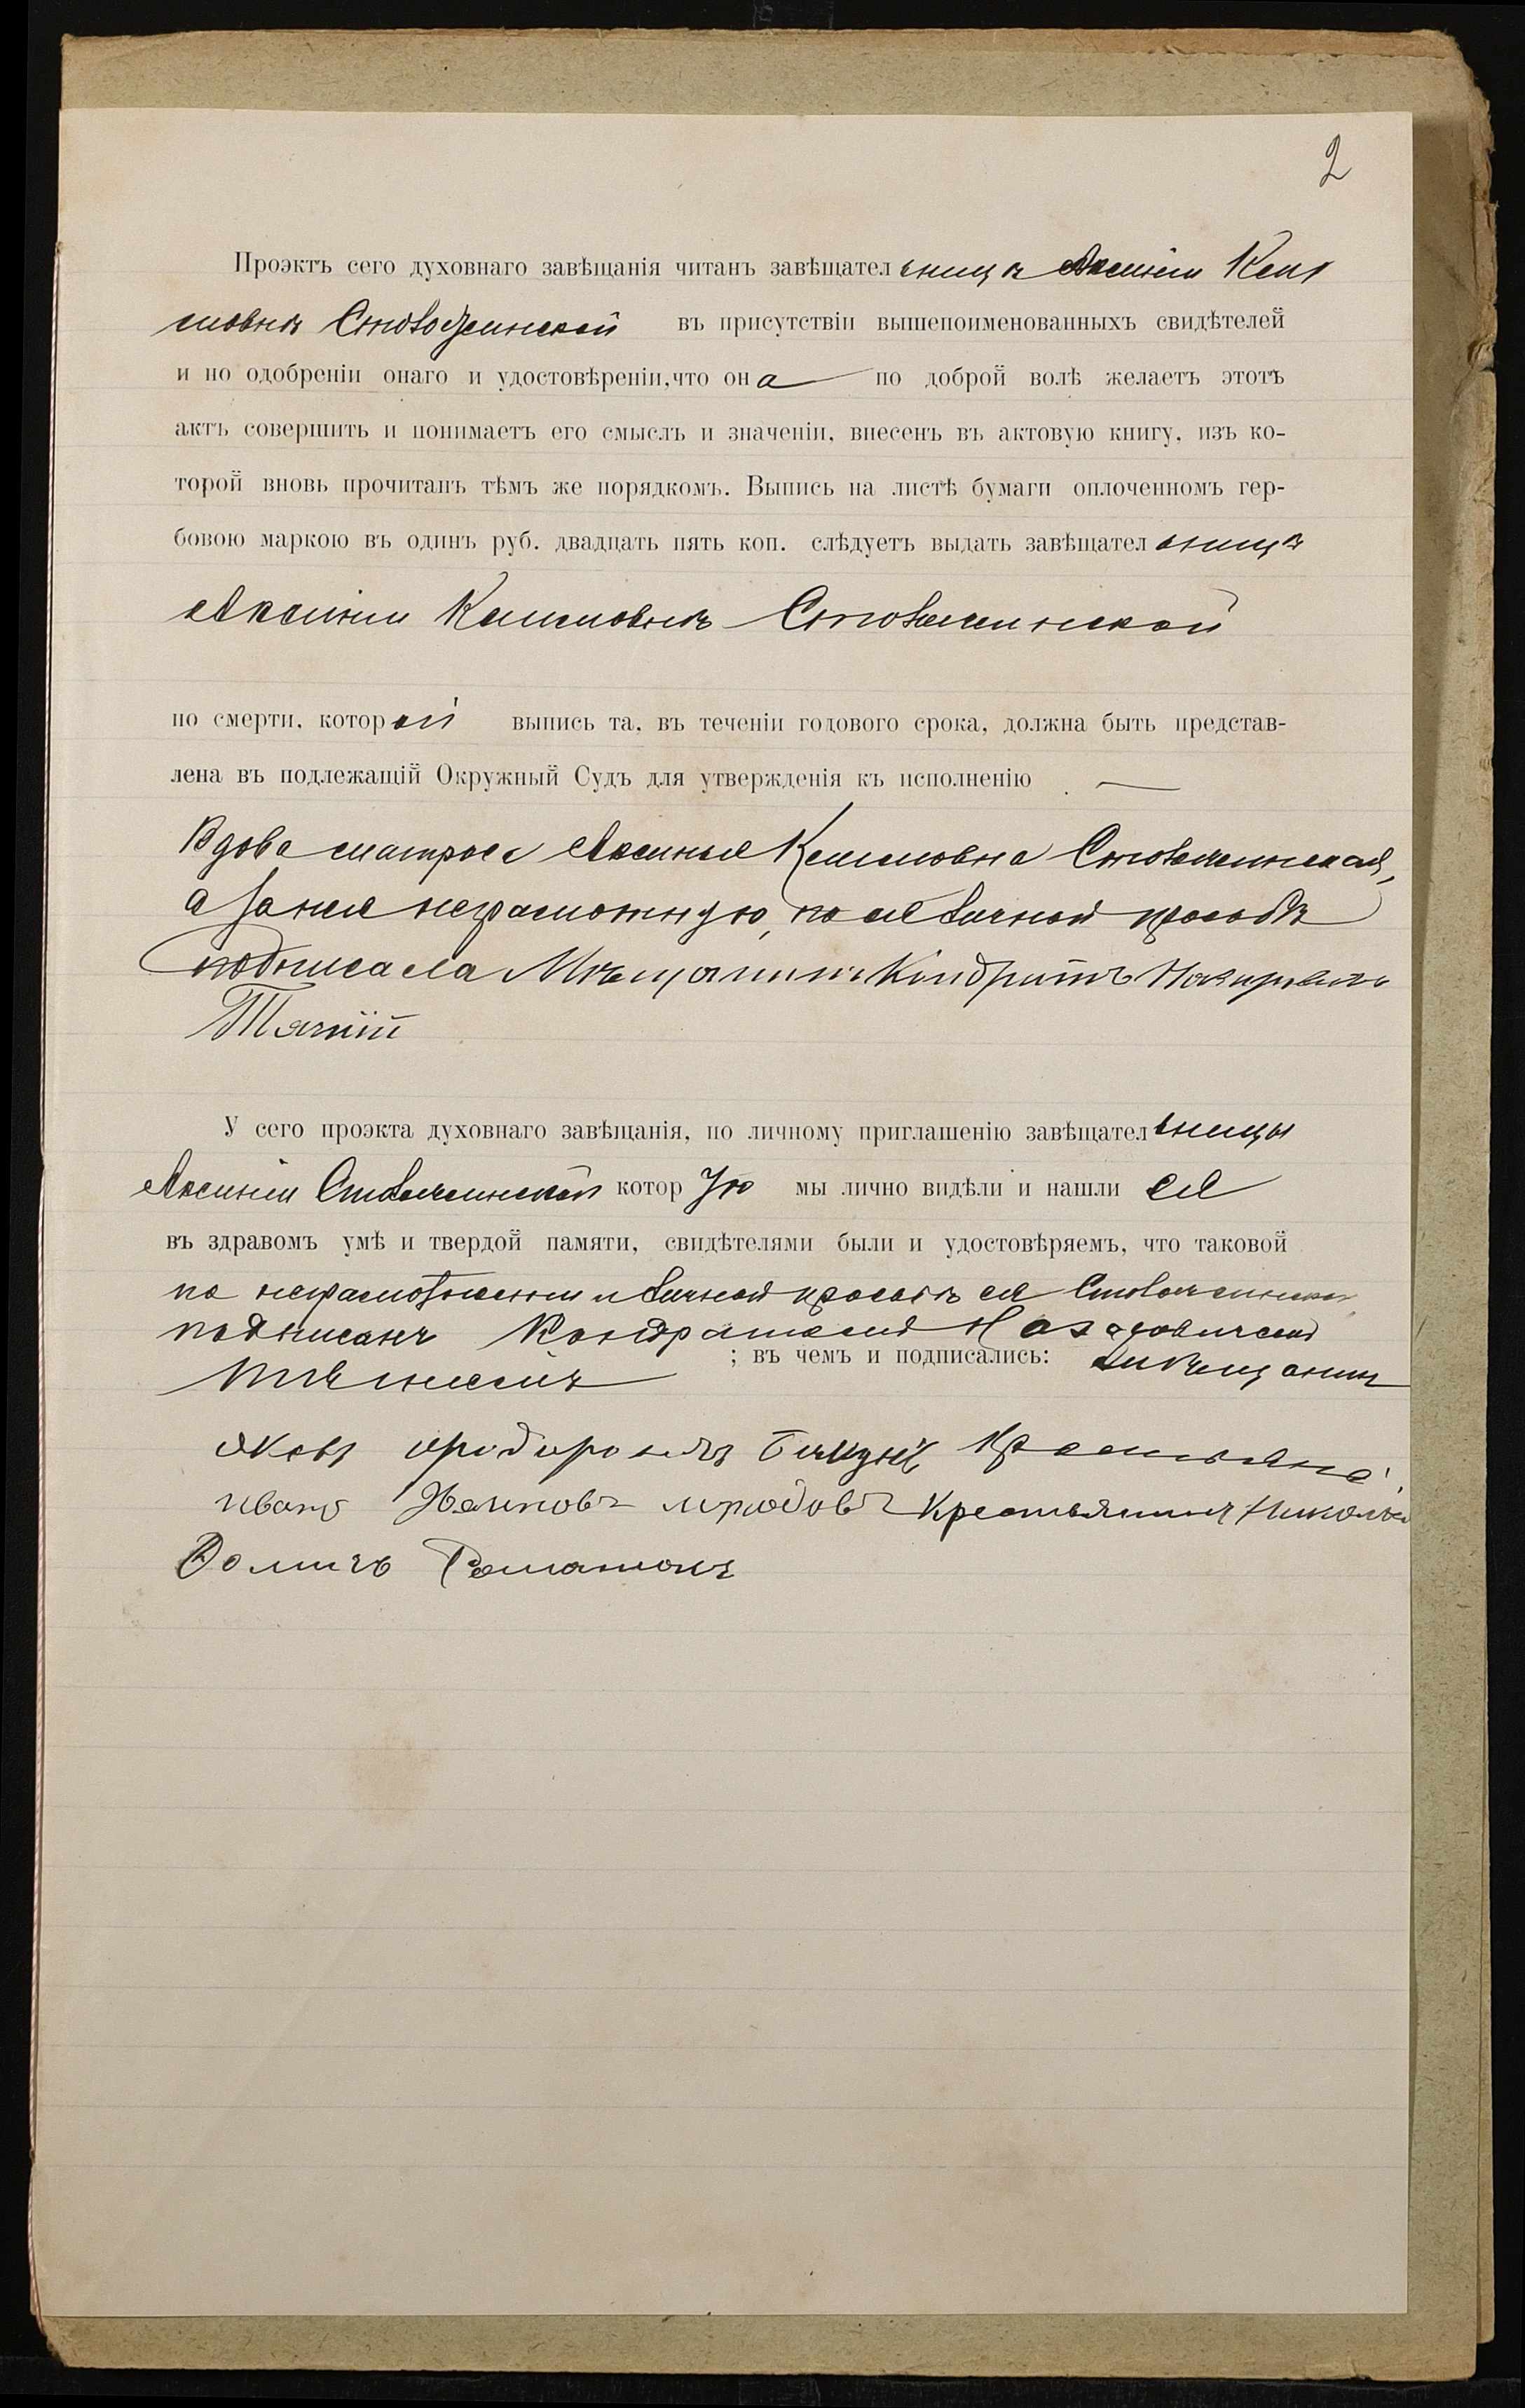 2
Проэктъ сего духовнаго завѣщанія читанъ завѣщательницѣ Аксиніи
въ присутствіи вышепоименованныхъ свидѣтелей
и по одобреніи онаго и удостовѣреніи, что она по доброй волѣ желаетъ этотъ
актъ совершить и понимаетъ его смыслъ и значеніи, внесенъ въ актовую книгу, изъ ко-
торой вновь прочитанъ тѣмъ же порядкомъ. Выпись на листѣ бумаги оплоченномъ гер-
бовою маркою въ одинъ руб. двадцать пять коп. слѣдуетъ выдать завѣщательницѣ
Аксиніи
по смерти, которой выпись та, въ теченіи годового срока, должна быть представ-
лена въ подлежащій Окружный Судъ для утвержденія къ исполненію
Вдова матроса Аксинья
а за нея неграмотную, по ея личной просьбѣ
подписала Мѣщанинъ Кіндратъ
У сего проэкта духовнаго завѣщанія, по личному приглашенію завѣщательницы
Аксиніи которую мы лично видѣли и нашли ея
въ здравомъ умѣ и твердой памяти, свидѣтелями были и удостовѣряемъ, что таковой
по неграмотности и личной просьбѣ ея
подписанъ Кондратомъ Назаровичемъ
; въ чемъ и подписались: Мѣщанин
Яковъ
иванъ крестьянинъ Николай
Романюкъ